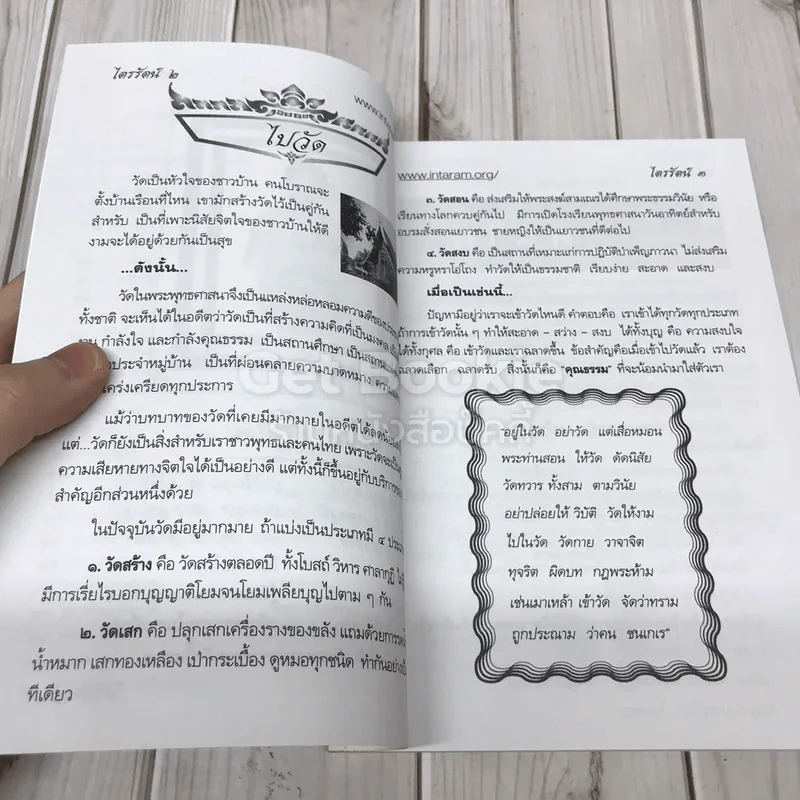 ไตรรัตน์ ๒
www.int
ไปวัด
วัดเป็นหัวใจของชาวบ้าน คนโบราณจะ
ตั้งบ้านเรือนที่ไหน เขามักสร้างวัดไว้เป็นคู่กัน
สำหรับ เป็นที่เพาะนิสัยจิตใจของชาวบ้านให้ดี
งามจะได้อยู่ด้วยกันเป็นสุข
...ดังนั้น...
วัดในพระพุทธศาสนาจึงเป็นแหล่งหล่อหลอมความดีของประชา
ทั้งชาติ จะเห็นได้ในอดีตว่าวัดเป็นที่สร้างความคิดที่เป็นมงคล
กำลังใจ และกำลังคุณธรรม เป็นสถานศึกษา เป็นสถาน
ประจำหมู่บ้าน เป็นที่ผ่อนคลายความบาดหมาง ความ
เคร่งเครียดทุกประการ
แม้ว่าบทบาทของวัดที่เคยมีมากมายในอดีตได้ลดน้อย
แต่...วัดก็ยังเป็นสิ่งสำหรับเราชาวพุทธและคนไทย เพราะวัดจะ
ความเสียหายทางจิตใจได้เป็นอย่างดี แต่ทั้งนี้ก็ขึ้นอยู่กับบริการของ
สำคัญอีกส่วนหนึ่งด้วย
ในปัจจุบันวัดมีอยู่มากมาย ถ้าแบ่งเป็นประเภทมี ๔ ประเภท
๑. วัดสร้าง คือ วัดสร้างตลอดปี ทั้งโบสถ์ วิหาร ศาลากุฏิ
มีการเรี่ยไรบอกบุญญาติโยมจนโยมเพลียบุญไปตาม ๆ กัน
๒. วัดเสก คือ ปลุกเสกเครื่องรางของขลัง แถมด้วยการรด
น้ำหมาก เสกทองเหลือง เป่ากระเบื้อง ดูหมอทุกชนิด ทำกันอย่าง
ทีเดียว
www.intaram.org/
ไตรรัตน์ ๓
๓. วัดสอน คือ ส่งเสริมให้พระสงฆ์สามเณรได้ศึกษาพระธรรมวินัย หรือ
เรียนทางโลกควบคู่กันไป มีการเปิดโรงเรียนพุทธศาสนาวันอาทิตย์สำหรับ
อบรมสั่งสอนเยาวชน ชายหญิงให้เป็นเยาวชนที่ดีต่อไป
๔. วัดสงบ คือ เป็นสถานที่เหมาะแก่การปฏิบัติบำเพ็ญภาวนา ไม่ส่งเสริม
ความหรูหราโอ่โถง ทำวัดให้เป็นธรรมชาติ เรียบง่าย สะอาด และสงบ
เมื่อเป็นเช่นนี้...
ปัญหามีอยู่ว่าเราจะเข้าวัดไหนดี คำตอบคือ เราเข้าได้ทุกวัดทุกประเภท
ถ้าการเข้าวัดนั้น ๆ ทำให้สะอาด - สว่าง - สงบ ได้ทั้งบุญ คือ ความสงบใจ
ได้ทั้งกุศล คือ เข้าวัดและเราฉลาดขึ้น ข้อสำคัญคือเมื่อเข้าไปวัดแล้ว เราต้อง
ฉลาดเลือก ฉลาดรับ สิ่งนั้นก็คือ "คุณธรรม" ที่จะน้อมนำมาใส่ตัวเรา
"อยู่ในวัด อย่าวัด แต่เสื่อหมอน
พระท่านสอน ให้วัด ดัดนิสัย
วัดทวาร ทั้งสาม ตามวินัย
อย่าปล่อยให้ วิบัติ วัดให้งาม
ไปในวัด วัดกาย วาจาจิต
ทุจริต ผิดบท กฎพระห้าม
เช่นเมาเหล้า เข้าวัด จัดว่าทราม
ถูกประณาม ว่าคน ชนเกเร"
Get Bookie
ร้านหนังสือบุ๊คกี้